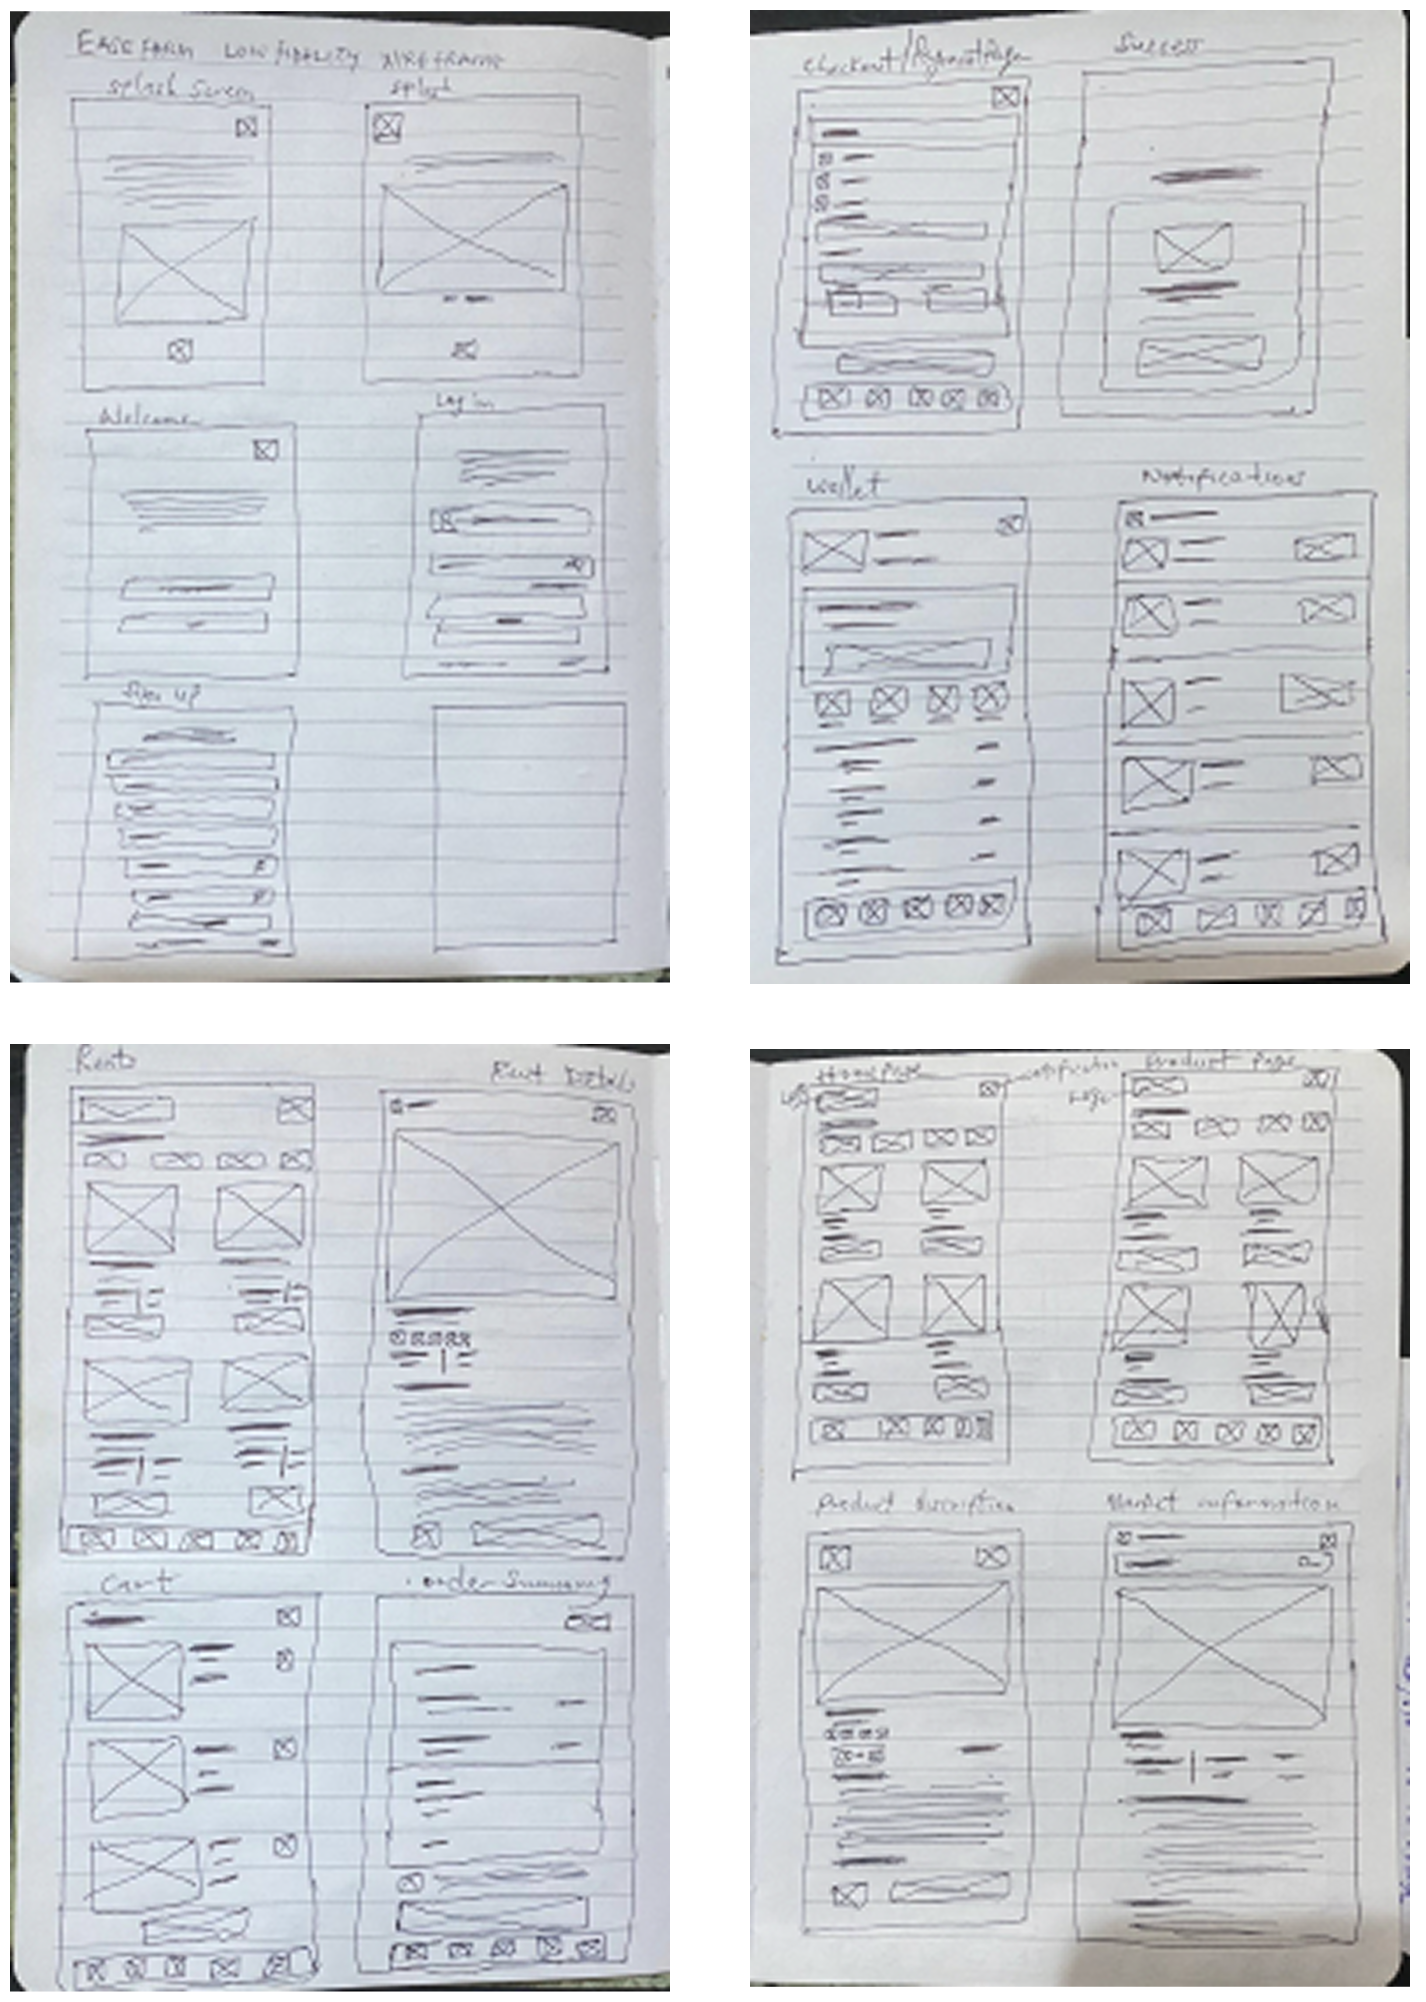 EASE FARM LOW FIDELITY WIREFRAME
Splash Screen
Splash
Welcome
Log in
Sign up
Checkout/Payment Page
Success
Wallet
Notifications
Rents
Rent Details
Cart
order Summary
HomePage
notification
Product Page
Logo
Logo
Product discription
Market information